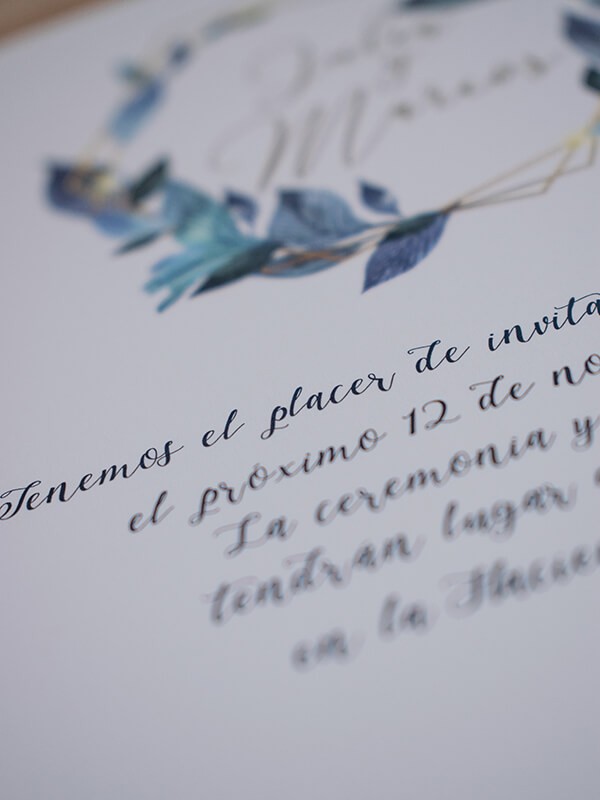 y
Marcos
Tenemos el placer de invita
el próximo 12 de no
La ceremonia y
tendran lugar
en la Hacien